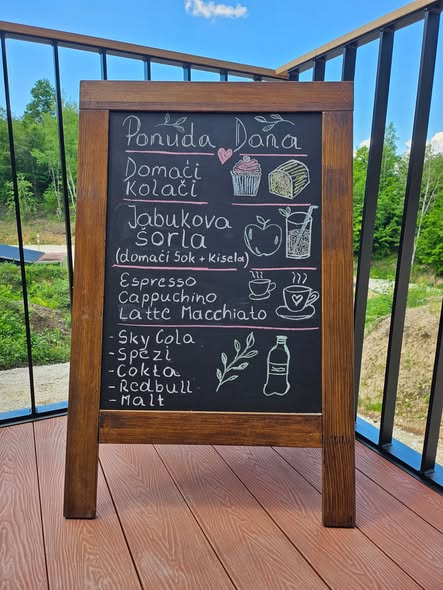 Ponuda Dana
Domaći
Kolači
Jabukova
Šorla
(domaći sok + kisela)
Espresso
Cappuchino
Latte Macchiato
- Sky Cola
- Spezi
- Cokta
- Redbull
- Malt